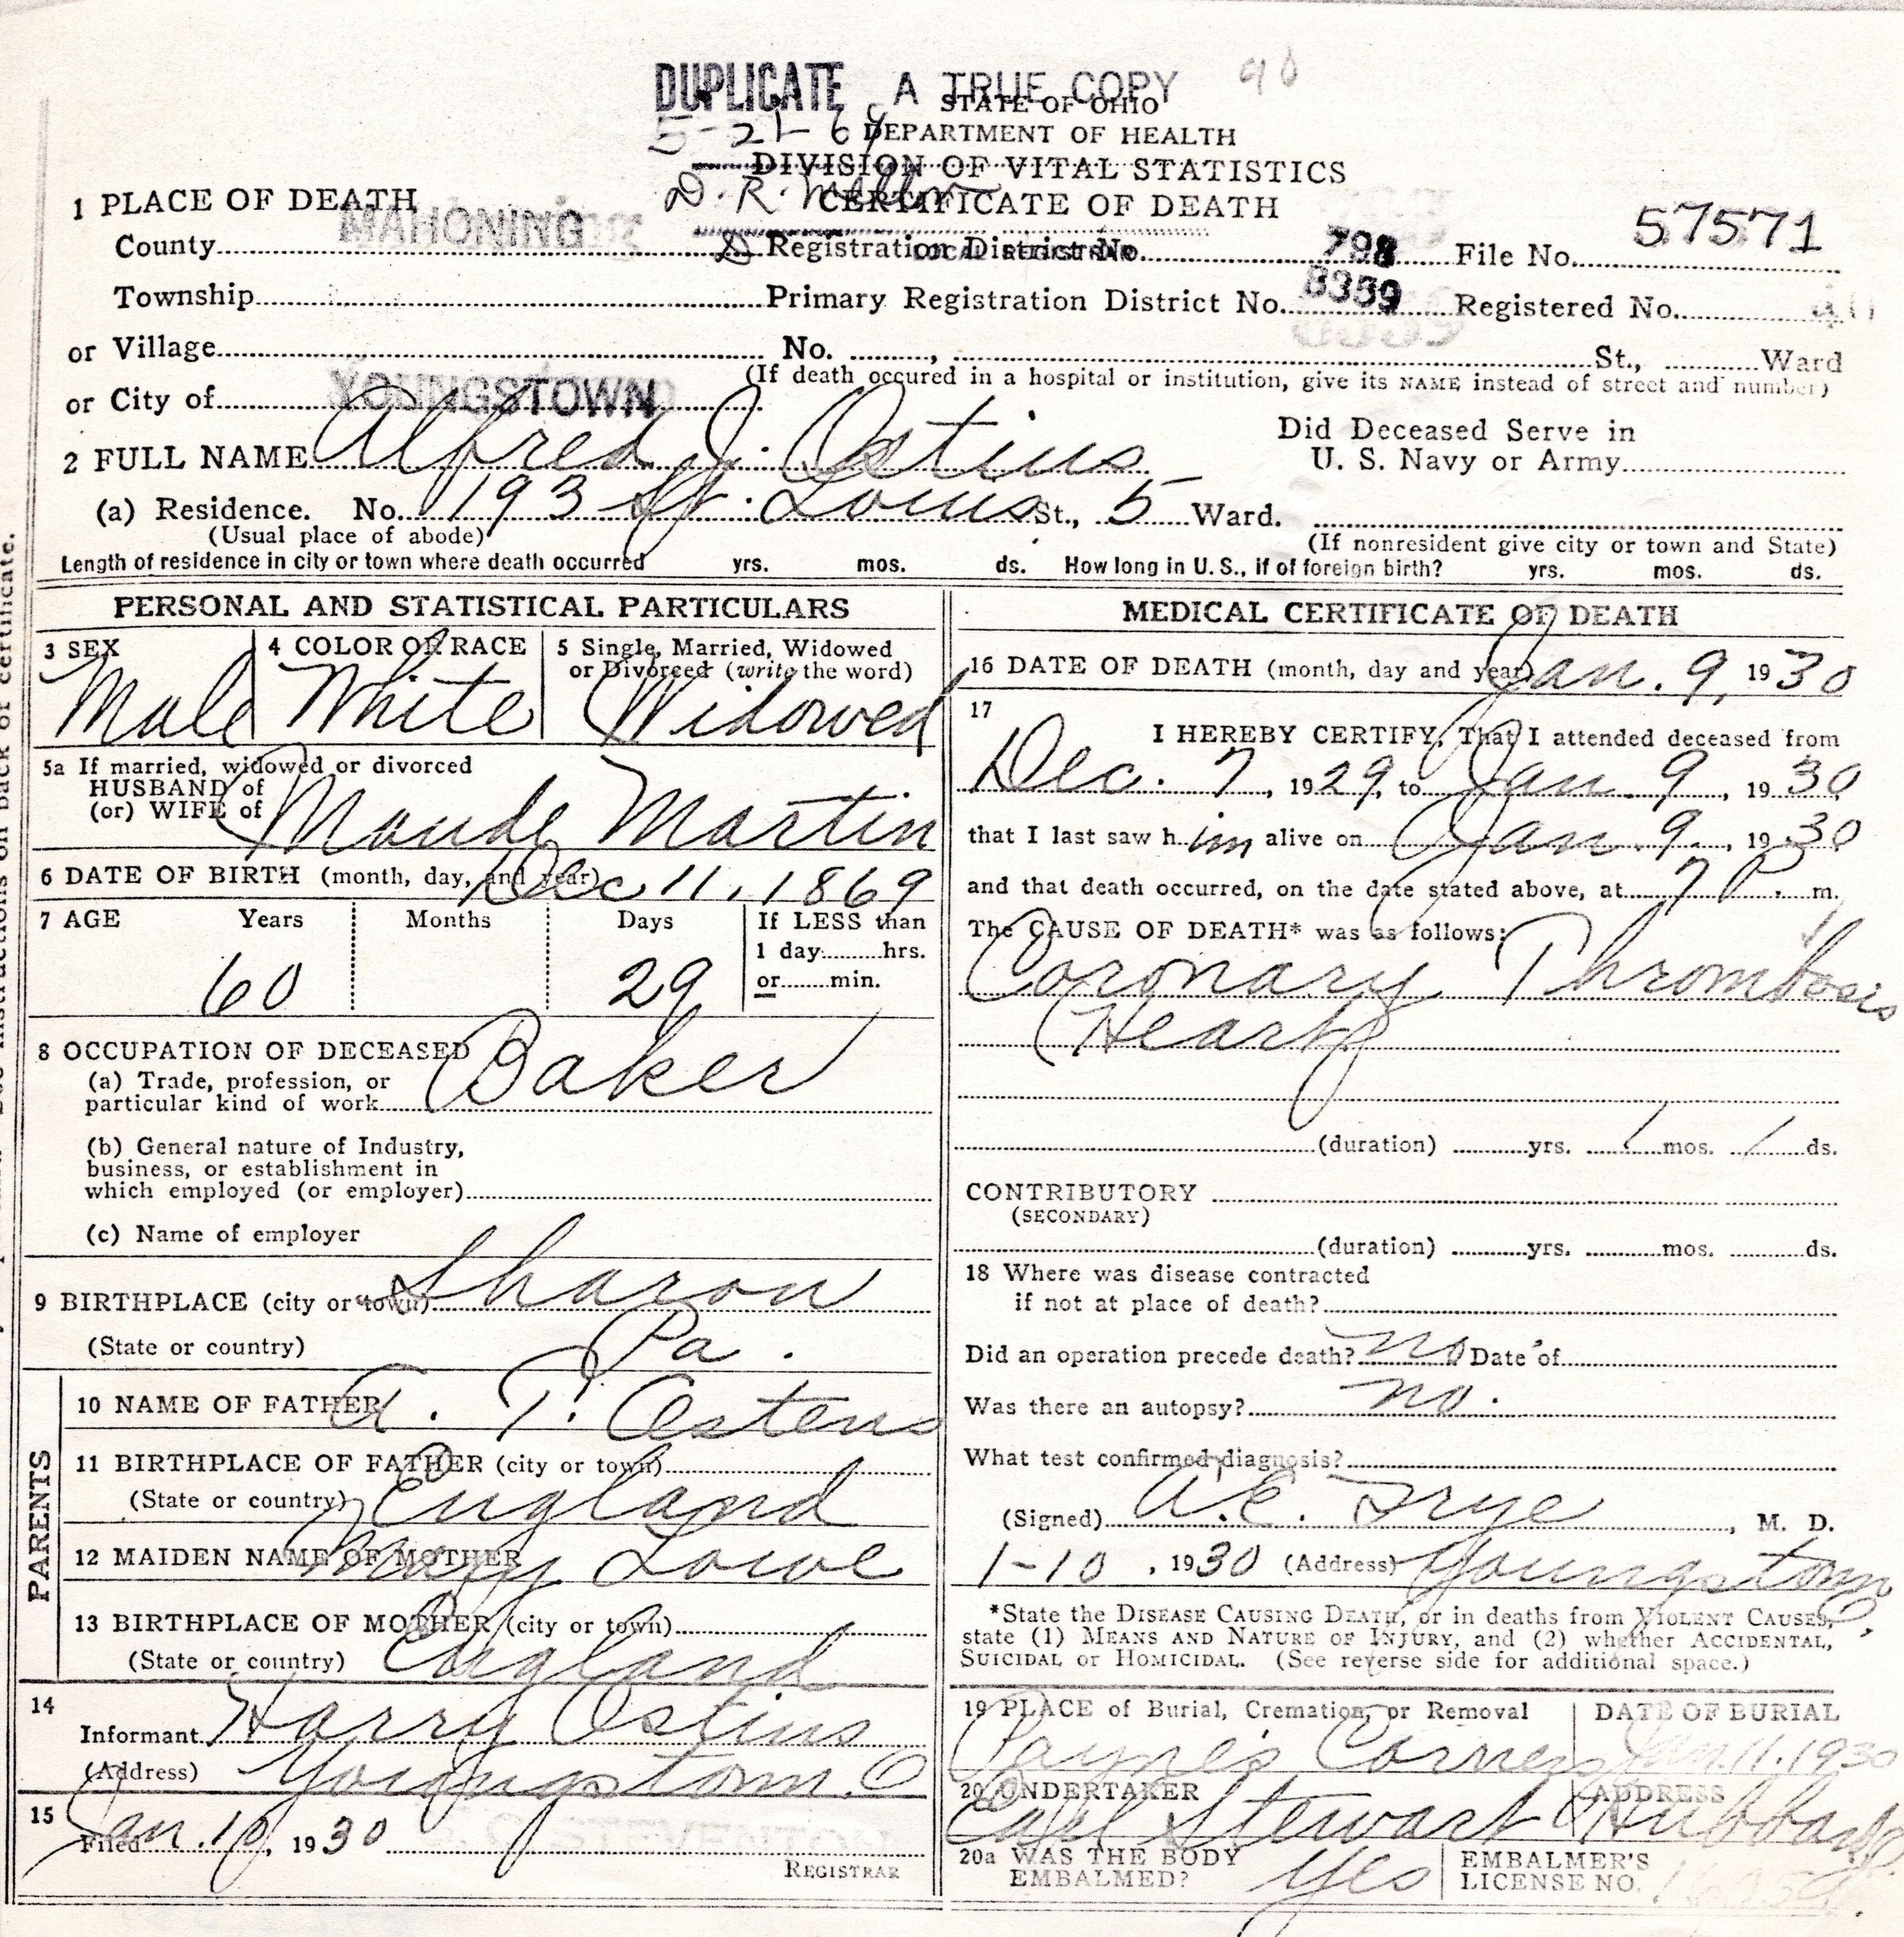 90
DUPLICATE A TRUE COPY
STATE OF OHIO
5-21-64
DEPARTMENT OF HEALTH
DIVISION OF VITAL STATISTICS
D. R.
CERTIFICATE OF DEATH
LOCAL REGISTRAR
1 PLACE OF DEATH
County MAHONING Registration District No. 798 File No. 57571
Township Primary Registration District No. 8359 Registered No.
or Village No. , St., Ward
(If death occured in a hospital or institution, give its NAME instead of street and number)
or City of YOUNGSTOWN
Did Deceased Serve in
U. S. Navy or Army
2 FULL NAME Alfred J. Ostius
(a) Residence. No. 193 St. Louis St., 5 Ward.
(Usual place of abode) (If nonresident give city or town and State)
Length of residence in city or town where death occurred yrs. mos. ds. How long in U. S., if of foreign birth? yrs. mos. ds.
PERSONAL AND STATISTICAL PARTICULARS
3 SEX 4 COLOR OR RACE 5 Single, Married, Widowed
or Divorced (write the word)
Male White Widowed
5a If married, widowed or divorced
HUSBAND of
(or) WIFE of Maude Martin
6 DATE OF BIRTH (month, day, and year) Dec 11, 1869
7 AGE Years Months Days If LESS than
1 day hrs.
or min.
60 29
8 OCCUPATION OF DECEASED
(a) Trade, profession, or
particular kind of work Baker
(b) General nature of Industry,
business, or establishment in
which employed (or employer)
(c) Name of employer
9 BIRTHPLACE (city or town) Sharon
(State or country) Pa.
PARENTS
10 NAME OF FATHER A. T. Ostens
11 BIRTHPLACE OF FATHER (city or town)
(State or country) England
12 MAIDEN NAME OF MOTHER Mary Lowe
13 BIRTHPLACE OF MOTHER (city or town)
(State or country) England
14
Informant Harry Ostius
(Address) Youngstown. O
15
Filed Jan. 10, 1930
REGISTRAR
MEDICAL CERTIFICATE OF DEATH
16 DATE OF DEATH (month, day and year) Jan. 9, 1930
17
I HEREBY CERTIFY, That I attended deceased from
Dec. 7, 1929, to Jan. 9, 1930
that I last saw him alive on Jan. 9, 1930
and that death occurred, on the date stated above, at 7 P. m.
The CAUSE OF DEATH* was as follows:
Coronary Thrombosis
(Heart)
(duration) yrs. 1 mos. 1 ds.
CONTRIBUTORY
(SECONDARY)
(duration) yrs. mos. ds.
18 Where was disease contracted
if not at place of death?
Did an operation precede death? no Date of
Was there an autopsy? no.
What test confirmed diagnosis?
(Signed) A. E. Frye, M. D.
1-10, 1930 (Address) Youngstown, O.
*State the DISEASE CAUSING DEATH, or in deaths from VIOLENT CAUSES,
state (1) MEANS AND NATURE OF INJURY, and (2) whether ACCIDENTAL,
SUICIDAL or HOMICIDAL. (See reverse side for additional space.)
19 PLACE of Burial, Cremation, or Removal DATE OF BURIAL
Payne's Corners Jan. 11. 1930
20 UNDERTAKER ADDRESS
Earl Stewart Hubbard, O.
20a WAS THE BODY
EMBALMED? yes
EMBALMER'S
LICENSE NO.